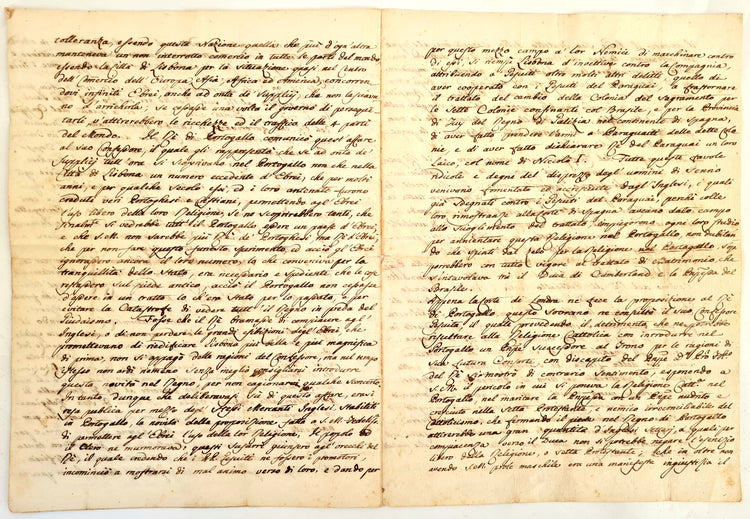 colleranza, essendo questa Nazione quella che più d'ogn'altra
manteneva un non interrotto comercio in tutte le parti del mondo
essendo la Città di Lisbona per la situazione quasi nel Centro
dell'Comercio dell'Europa Asia Affrica ed America, concorren
dovi infiniti Ebrei anche ad onta de Supplizj, che non lasciava
no d'arrichirla; se cessasse una volta il Governo di persequi
tarli s'attirerebbero le ricchezze ed il traffico delle 4 parti
del Mondo. Il Rè di Portogallo comunicò quest'affare
al suo Confessore, il quale gli rappresentò che se ad onta de
Supplizj tutt'ora si scorgono nel Portogallo non che nella
Città di Lisbona un numero eccedente d'Ebrei, che per molti
anni, e per qualche secolo essi, ed i loro antenati furono
creduti veri Portoghesi e Cristiani, permettendo agl'Ebrei
l'uso libero della loro Religione, se ne scoprirebbero tanti, che
finalm. si vedrebbe tutt'il Portogallo essere un paese d'Ebrei,
e che S.M. non sarebbe più Rè de Portoghesi ma de Ebrei,
che per non fare questo funesto esperimento, ed acciò gl'Ebrei
ignorassero ancora il loro numero, la che conveniva per la
tranquillità dello Stato, era necessario e spediente che le cose
restassero sul piede antico, acciò il Portogallo non cessasse
d'essere in un tratto lo ch'era stato per lo passato, e per
evitare la Catastrofe di vedere tutt'il Regno in preda del
Judaismo. Fosse che il Rè tramasse di compiacere gl'
Inglesi, o di non perdere le grandi esibizioni degl'Ebrei che
promettevano di riedificare Lisbona più bella e più magnifica
di prima, non si appagò delle ragioni del Confessore, ma nel tempo
stesso non ardì nemeno senza meglio consigliarsi introdurre
questa novità nel Regno, per non cagionarvi qualche sconcerto.
In tanto dunque che deliberavasi sù di quest'affare, erasi
resa publica per mezzo degli stessi Mercanti Inglesi stabiliti
in Portogallo, la novità della proposizione fatta a S.M. Fedeliss.
di permettere agl'Ebrei l'uso della lor Religione, il Popolo ed
il Clero ne mormorava; questi susurri giunsero all'orecchie del
Rè, il quale credendo che i RR. Gesuiti ne fossero i promotori
incominciò a mostrarsi di mal animo verso di loro, e dando per
per questo mezzo campo a lor Nemici di macchinare contro
di essi, si riempì Lisbona d'invettive contro la Compagnia
attribuendo a Gesuiti oltre molti altri delitti quello di
aver cooperato con i Gesuiti del Paraguai, a frastornare
il trattato del cambio della Colonia del Sagramento per
le sette Colonie confinanti col Brasile, e per la Provincia
di Tuy del Regno di Galizia nel continente di Spagna,
di aver fatto prender l'armi a Paraguaiti delle dette Colo
nie, e di aver fatto dichiarare Rè del Paraguai un loro
Laico, col nome di Nicola I. Tutte queste favole
ridicole e degni del disprezzo degl'uomini di senno
venivano fomentate ed accreditate dagl'Inglesi, i quali
già sdegnati contro i Gesuiti del Paraguai, perchè colle
loro rimostranze alla Corte di Spagna aveano dato campo
allo scioglimento del trattato, impiegarono ogni loro studio
per annientare questa Religione nel Portogallo, non dubitan
do che spinti dal zelo per la Religione nel Portogallo s'op
porrebbero con tutto vigore al trattato di Matrimonio, che
s'intavolava tra il Duca di Cumberland e la Principessa del
Brasile.
Appena la Corte di Londra ne fece la proposizione al Rè
di Portogallo, questo Sovrano ne consultò il suo Confessore
Gesuita, il quale prevedendo il detrimento che ne potrebbe
risultare alla Religione Cattolica con introdurre nel
Portogallo un Principe successore al Trono per le ragioni di
sua futura Consorte, con discapito del Principe D. Pietro
del Rè, si mostrò di contrario sentimento, esponendo a
S.M. il pericolo in cui si poneva la Religione Catt. nel
Portogallo, nel maritare la Principessa con un Principe nudrito e
cresciuto nella Setta Protestante, e nemico irreconciliabile del
Cattolicismo, che fermando il piede nel Regno di Portogallo
attirerebbe una gran quantità d'Inglesi seguaj, a quali per
compiacenza verso il Duca non si potrebbe negare l'esercizio
libero della Religione, o Setta Protestante; che in oltre non
avendo S.M. prole maschile era una manifesta ingiustizia il